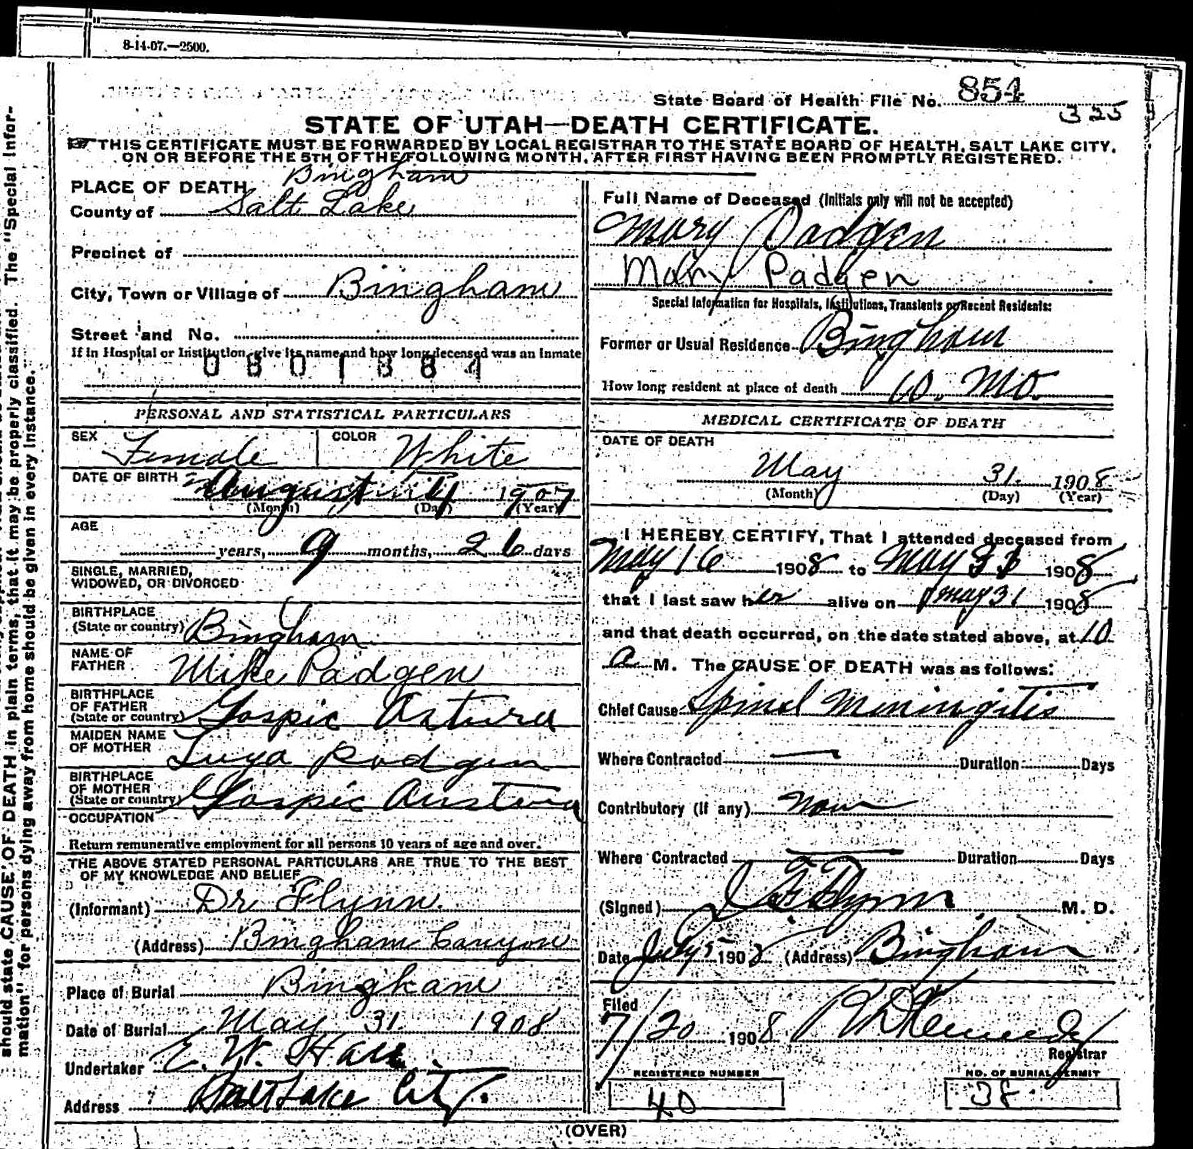 8-14-07.—2500.
State Board of Health File No. 854
325
STATE OF UTAH—DEATH CERTIFICATE.
THIS CERTIFICATE MUST BE FORWARDED BY LOCAL REGISTRAR TO THE STATE BOARD OF HEALTH, SALT LAKE CITY,
ON OR BEFORE THE 5TH OF THE FOLLOWING MONTH, AFTER FIRST HAVING BEEN PROMPTLY REGISTERED.
should state CAUSE OF DEATH in plain terms, that it may be properly classified. The "Special Infor-
mation" for persons dying away from home should be given in every instance.
PLACE OF DEATH Bingham
County of Salt Lake
Precinct of
City, Town or Village of Bingham
Street and No.
If in Hospital or Institution, give its name and how long deceased was an Inmate
0801384
PERSONAL AND STATISTICAL PARTICULARS
SEX Female COLOR White
DATE OF BIRTH August 4 1907
(Month) (Day) (Year)
AGE
years, 9 months, 26 days
SINGLE, MARRIED,
WIDOWED, OR DIVORCED
BIRTHPLACE
(State or country) Bingham
NAME OF
FATHER Mike Padgen
BIRTHPLACE
OF FATHER
(State or country) Gospic Astura
MAIDEN NAME
OF MOTHER Luya Padgen
BIRTHPLACE
OF MOTHER
(State or country) Gospic Austria
OCCUPATION
Return remunerative employment for all persons 10 years of age and over.
THE ABOVE STATED PERSONAL PARTICULARS ARE TRUE TO THE BEST
OF MY KNOWLEDGE AND BELIEF
(Informant) Dr Flynn.
(Address) Bingham Canyon
Place of Burial Bingham
Date of Burial May 31 1908
Undertaker E. W. Hall
Address Salt Lake City.
Full Name of Deceased (Initials only will not be accepted)
Mary Padgen
Mary Padgen
Special Information for Hospitals, Institutions, Transients or Recent Residents:
Former or Usual Residence Bingham
How long resident at place of death 10. Mo.
MEDICAL CERTIFICATE OF DEATH
DATE OF DEATH
May 31. 1908.
(Month) (Day) (Year)
I HEREBY CERTIFY, That I attended deceased from
May 16 1908 to May 31 1908
that I last saw her alive on May 31 1908
and that death occurred, on the date stated above, at 10
a M. The CAUSE OF DEATH was as follows:
Chief Cause Spinal Meningitis
Where Contracted — Duration Days
Contributory (if any) None
Where Contracted — Duration Days
(Signed) Flynn M. D.
Date July 5 1908 (Address) Bingham
Filed
7/20 1908
Registrar
REGISTERED NUMBER
40
NO. OF BURIAL PERMIT
38
(OVER)